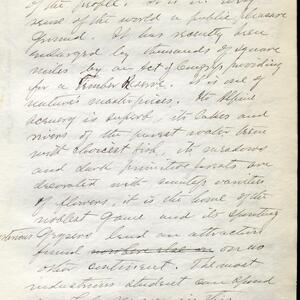 of the people. It is in every
sense of the world a public pleasure
Ground. It has recently been
enlarged by thousands of square
miles by an Act of Congress, providing
for a Timber Reserve. It is one of
nature's masterpieces. Its Alpine
scenery is superb, its lakes and
rivers of the purest water teem
with choicest fish, its meadows
and dark primitive forests are
decorated with countless varieties
of flowers, it is the home of the
noblest game and its spouting
Geysers lend an attractions
found nowhere else on on no
other continent. The most
industrious student can spend